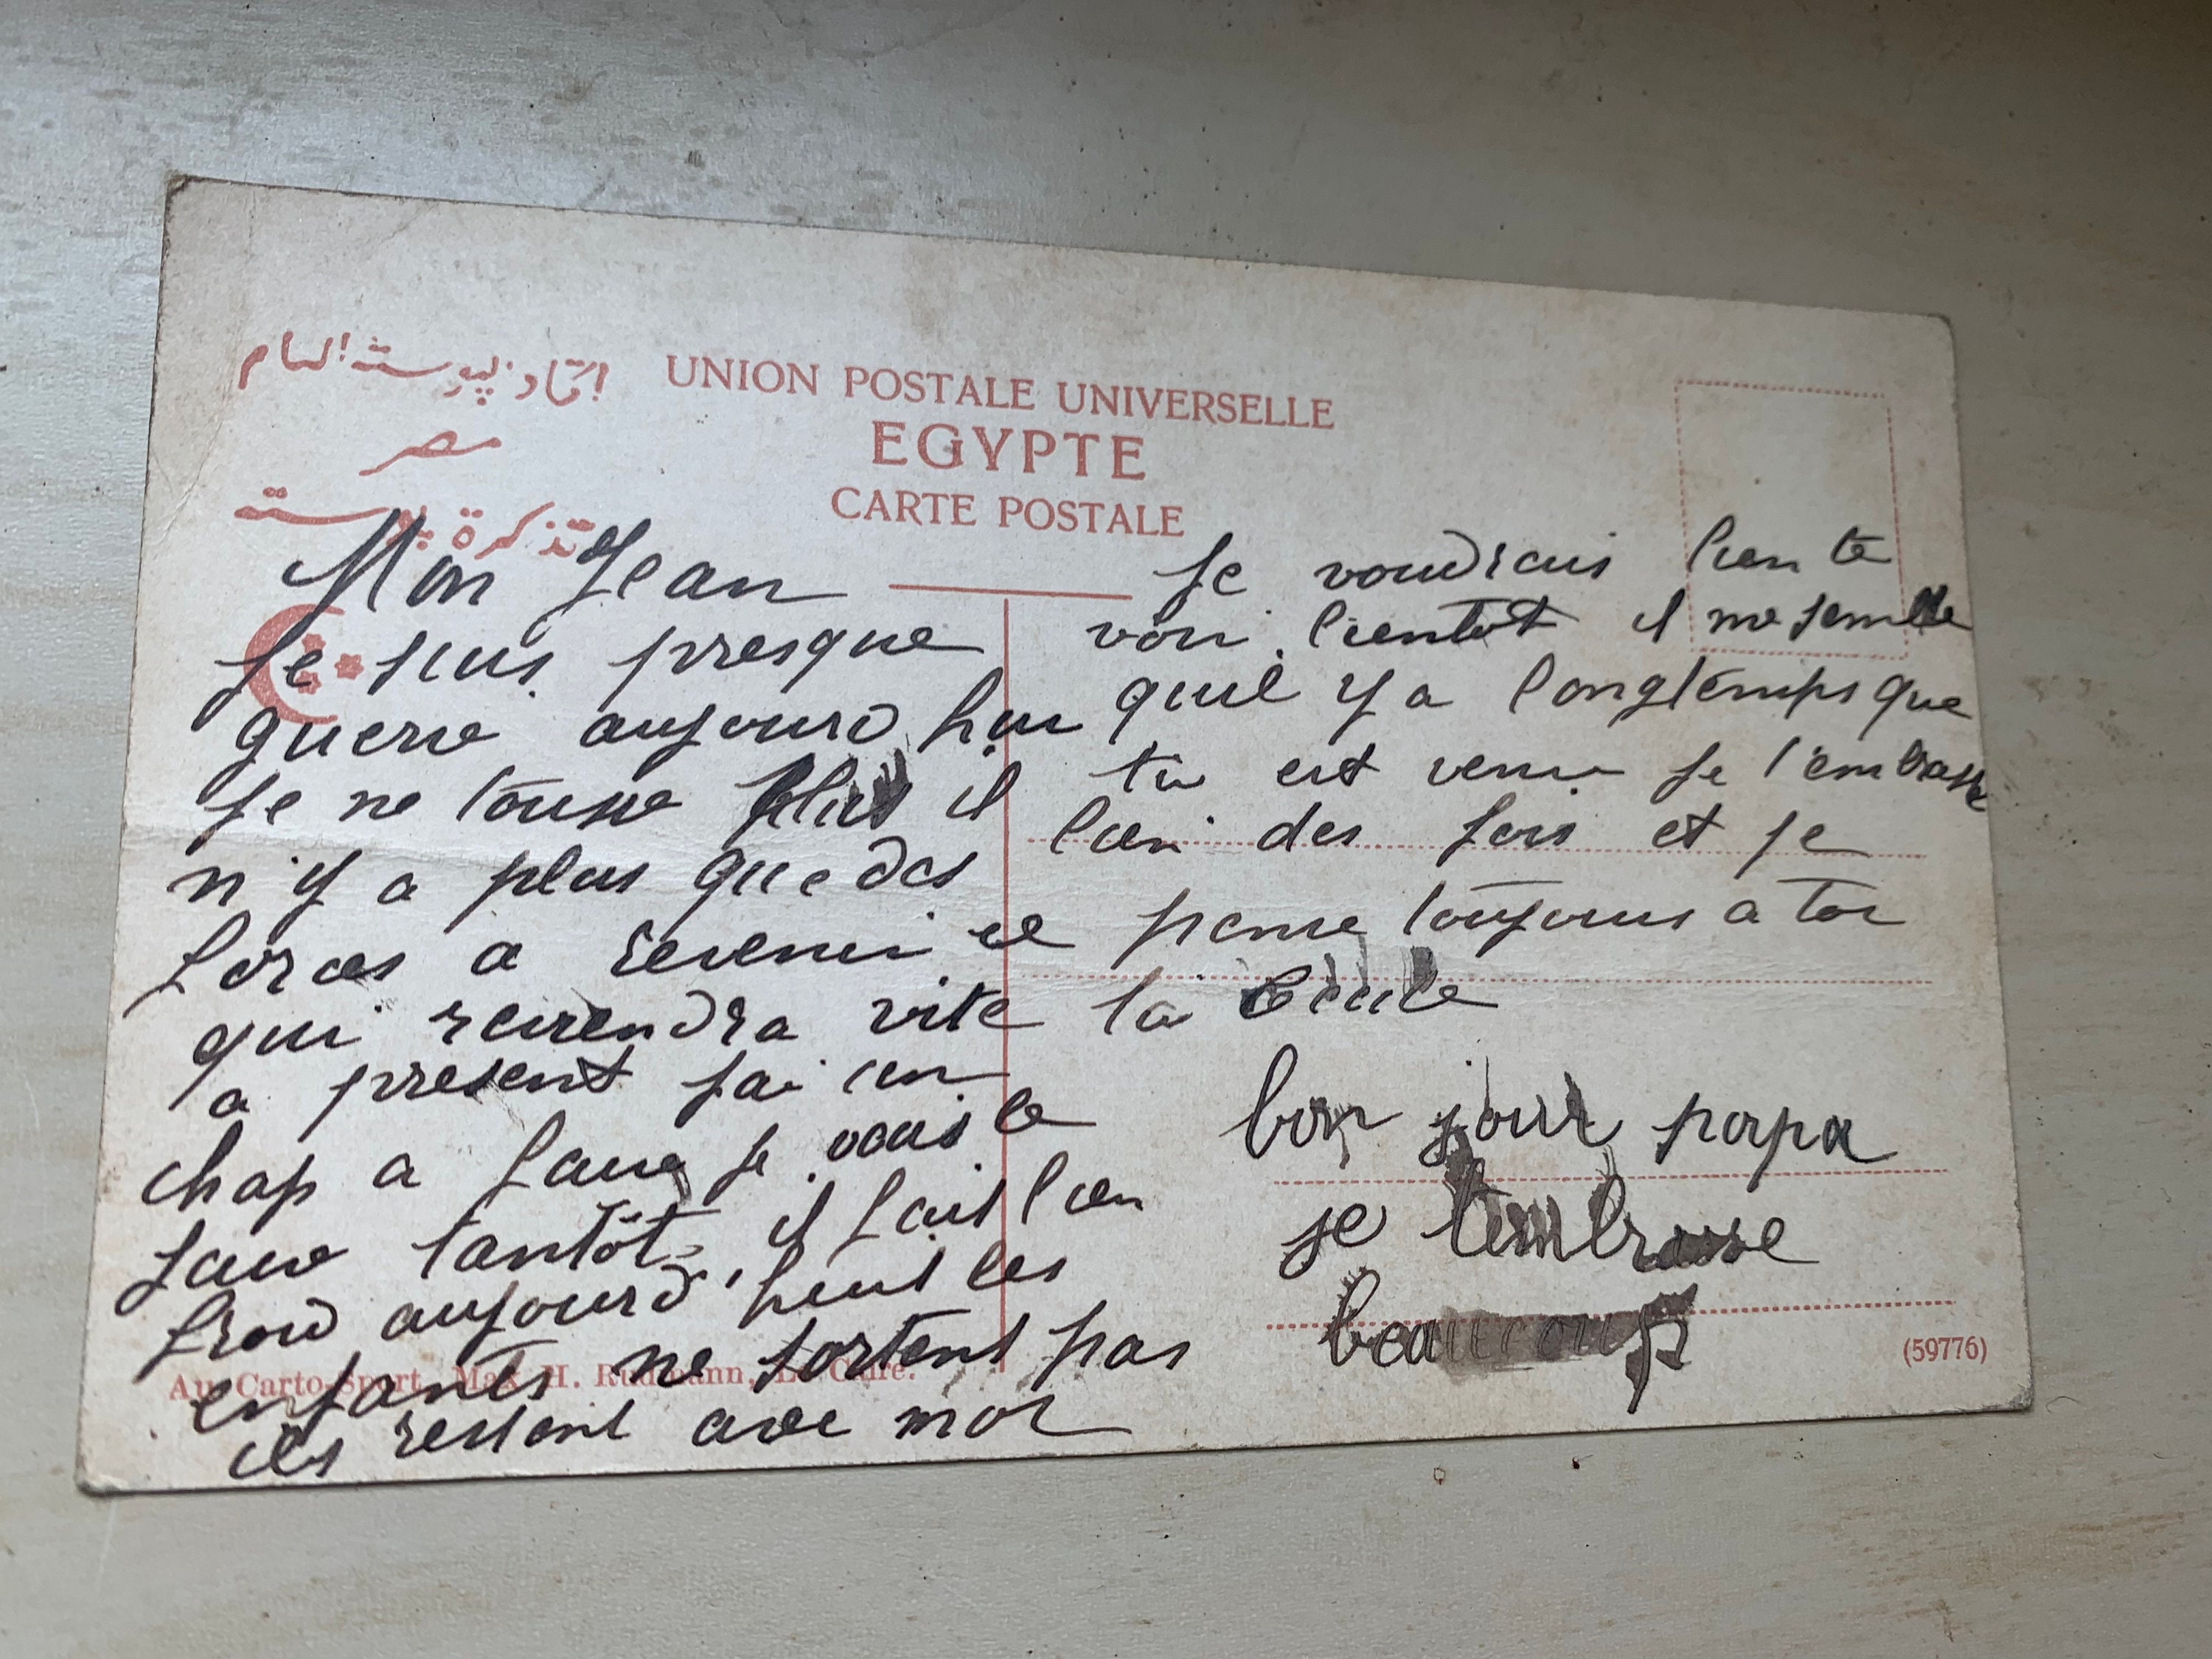 اتحاد پوسته العام
UNION POSTALE UNIVERSELLE
مصر
EGYPTE
تذكرة پوسته
CARTE POSTALE
Mon Jean
Je suis presque
guerie aujourd hui
je ne tousse plus il
n'y a plus que des
forces a revenir ce
qui reviendra vite
a present j'ai un
chap a faire je vais le
faire tantôt, il fait bien
froid aujourd'huit les
enfants ne sortent pas
ils restent avec moi
Je voudrais bien te
voir bientot il me semble
quil y a longtemps que
tu est venu je t'embrasse
bien des fois et je
pense toujours a toi
ta Cécile
bon jour papa
je t'embrasse
beaucoup
Au Carto-Sport, Max H. Rudmann, Le Caire.
(59776)